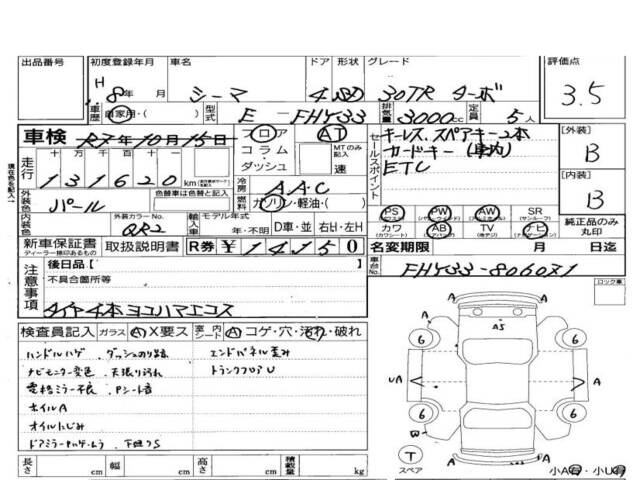 出品番号 初度登録年月 車名 ドア 形状 グレード 評価点
H 8年 月 シーマ 4 SD 30TR ターボ 3.5
車歴 自家用・( ) 型式 E - FHY33 排気量 3000cc 定員 5人
車検 R7年10月15日 フロア AT キーレス、スペアキー2本 [外装]
コラム MTのみ記入 カードキー (車内) B
ダッシュ 速 ETC
走行 十万 万 千 百 十 一
131620 km セールスポイント [内装]
冷房 AAC B
外装色 パール 色替車は色替と記入 燃料 ガソリン・軽油・( )
PS PW AW SR 純正品のみ丸印
内装色 外装カラーNo. QR2 輸入車 モデル年式 年・不明 D車・並 右H・左H カワ AB TV ナビ
新車保証書 取扱説明書 R券 ¥14150 名変期限 月 日迄
ディーラー捺印あるもの
注意事項 後日品【 】 車台No. FHY33-806071
不具合箇所等 ロック車
タイヤ4本ヨコハマエコス
検査員記入 ガラス A X要ス 室内シート A コゲ・穴・汚れ・破れ
ハンドルハゲ、ダッシュのり跡 エンドパネル歪み
ナビモニター変色、天張り汚れ トランクフロアU
電格ミラー不良、Pシート音
ホイルA
オイルにじみ
下廻りS
AS
6 6
UA A A
6 6
W A
T スペア A
長さ cm 幅 cm 高さ cm 積載量 kg 小A 小U
現在色を記入